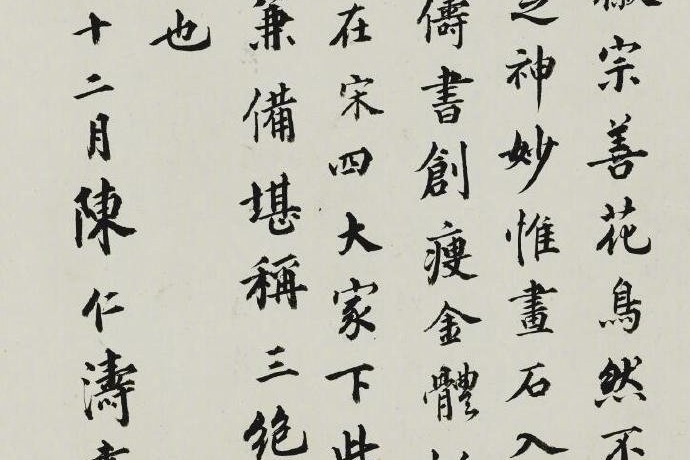 宗善花鳥然不
之神妙惟畫石入
儔書創瘦金體
在宋四大家下此
兼備堪稱三絕
也
十二月陳仁濤